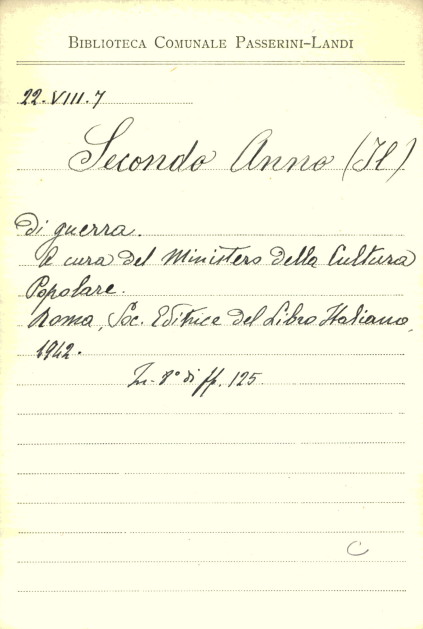 BIBLIOTECA COMUNALE PASSERINI-LANDI
22.VIII.7
Secondo Anno (Il)
di guerra.
A cura del Ministero della Cultura
Popolare.
Roma, Soc. Editrice del Libro Italiano,
1942.
In-8° di ff. 125
C